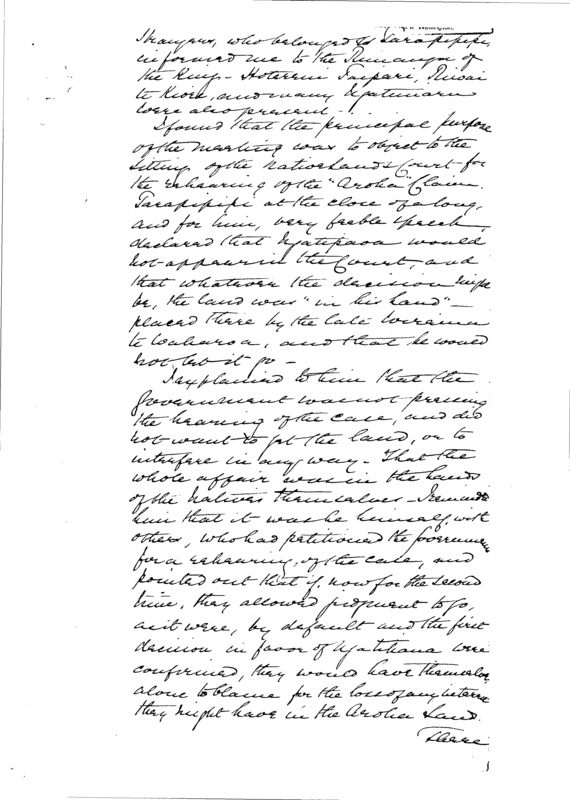 Strangers, who belonged to Tarapipipi,
informed me to the Runanga of
the King - Hoterini Taipari, Riwai
te Kiore, and many Ngatimaru
were also present -
I found that the principal purpose
of the meeting was to object to the
sitting of the Native Lands Court for
the rehearing of the "Aroha" Claim.
Tarapipipi at the close of a long,
and for him, very feeble speech,
declared that Ngatipaoa would
not appear in the Court, and
that whatever the decision might
be, the land was "in his hand" -
placed there by the late Wiremu
te Waharoa, and that he would
not let it go -
I explained to him that the
Government was not pressing
the hearing of the case, and did
not want to get the land, or to
interfere in any way - That the
whole affair was in the hands
of the Natives themselves - I reminded
him that it was he himself, with
others, who had petitioned the Government
for a rehearing, of the case, and
pointed out that if, now for the second
time, they allowed judgment to go,
as it were, by default and the first
decision in favor of Ngatihaua were
confirmed, they would have themselves
alone to blame for the loss of any interest
they might have in the Aroha Land.